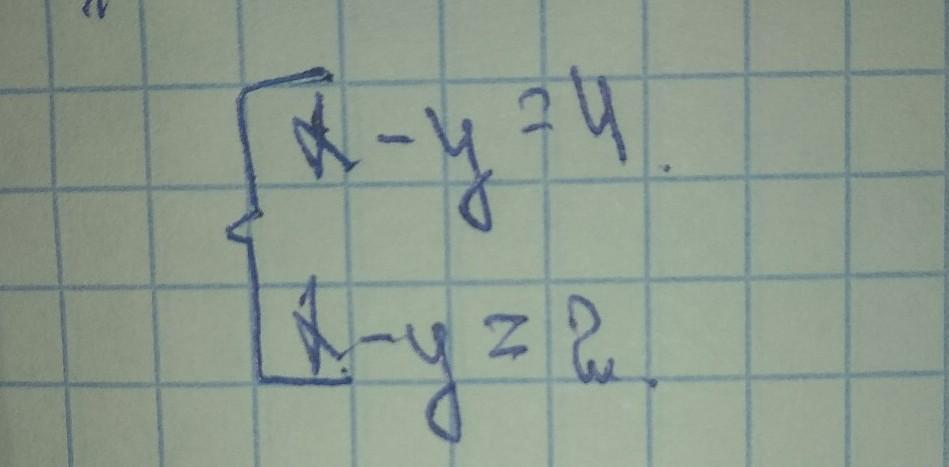 x - y = 4.
x - y = 2.